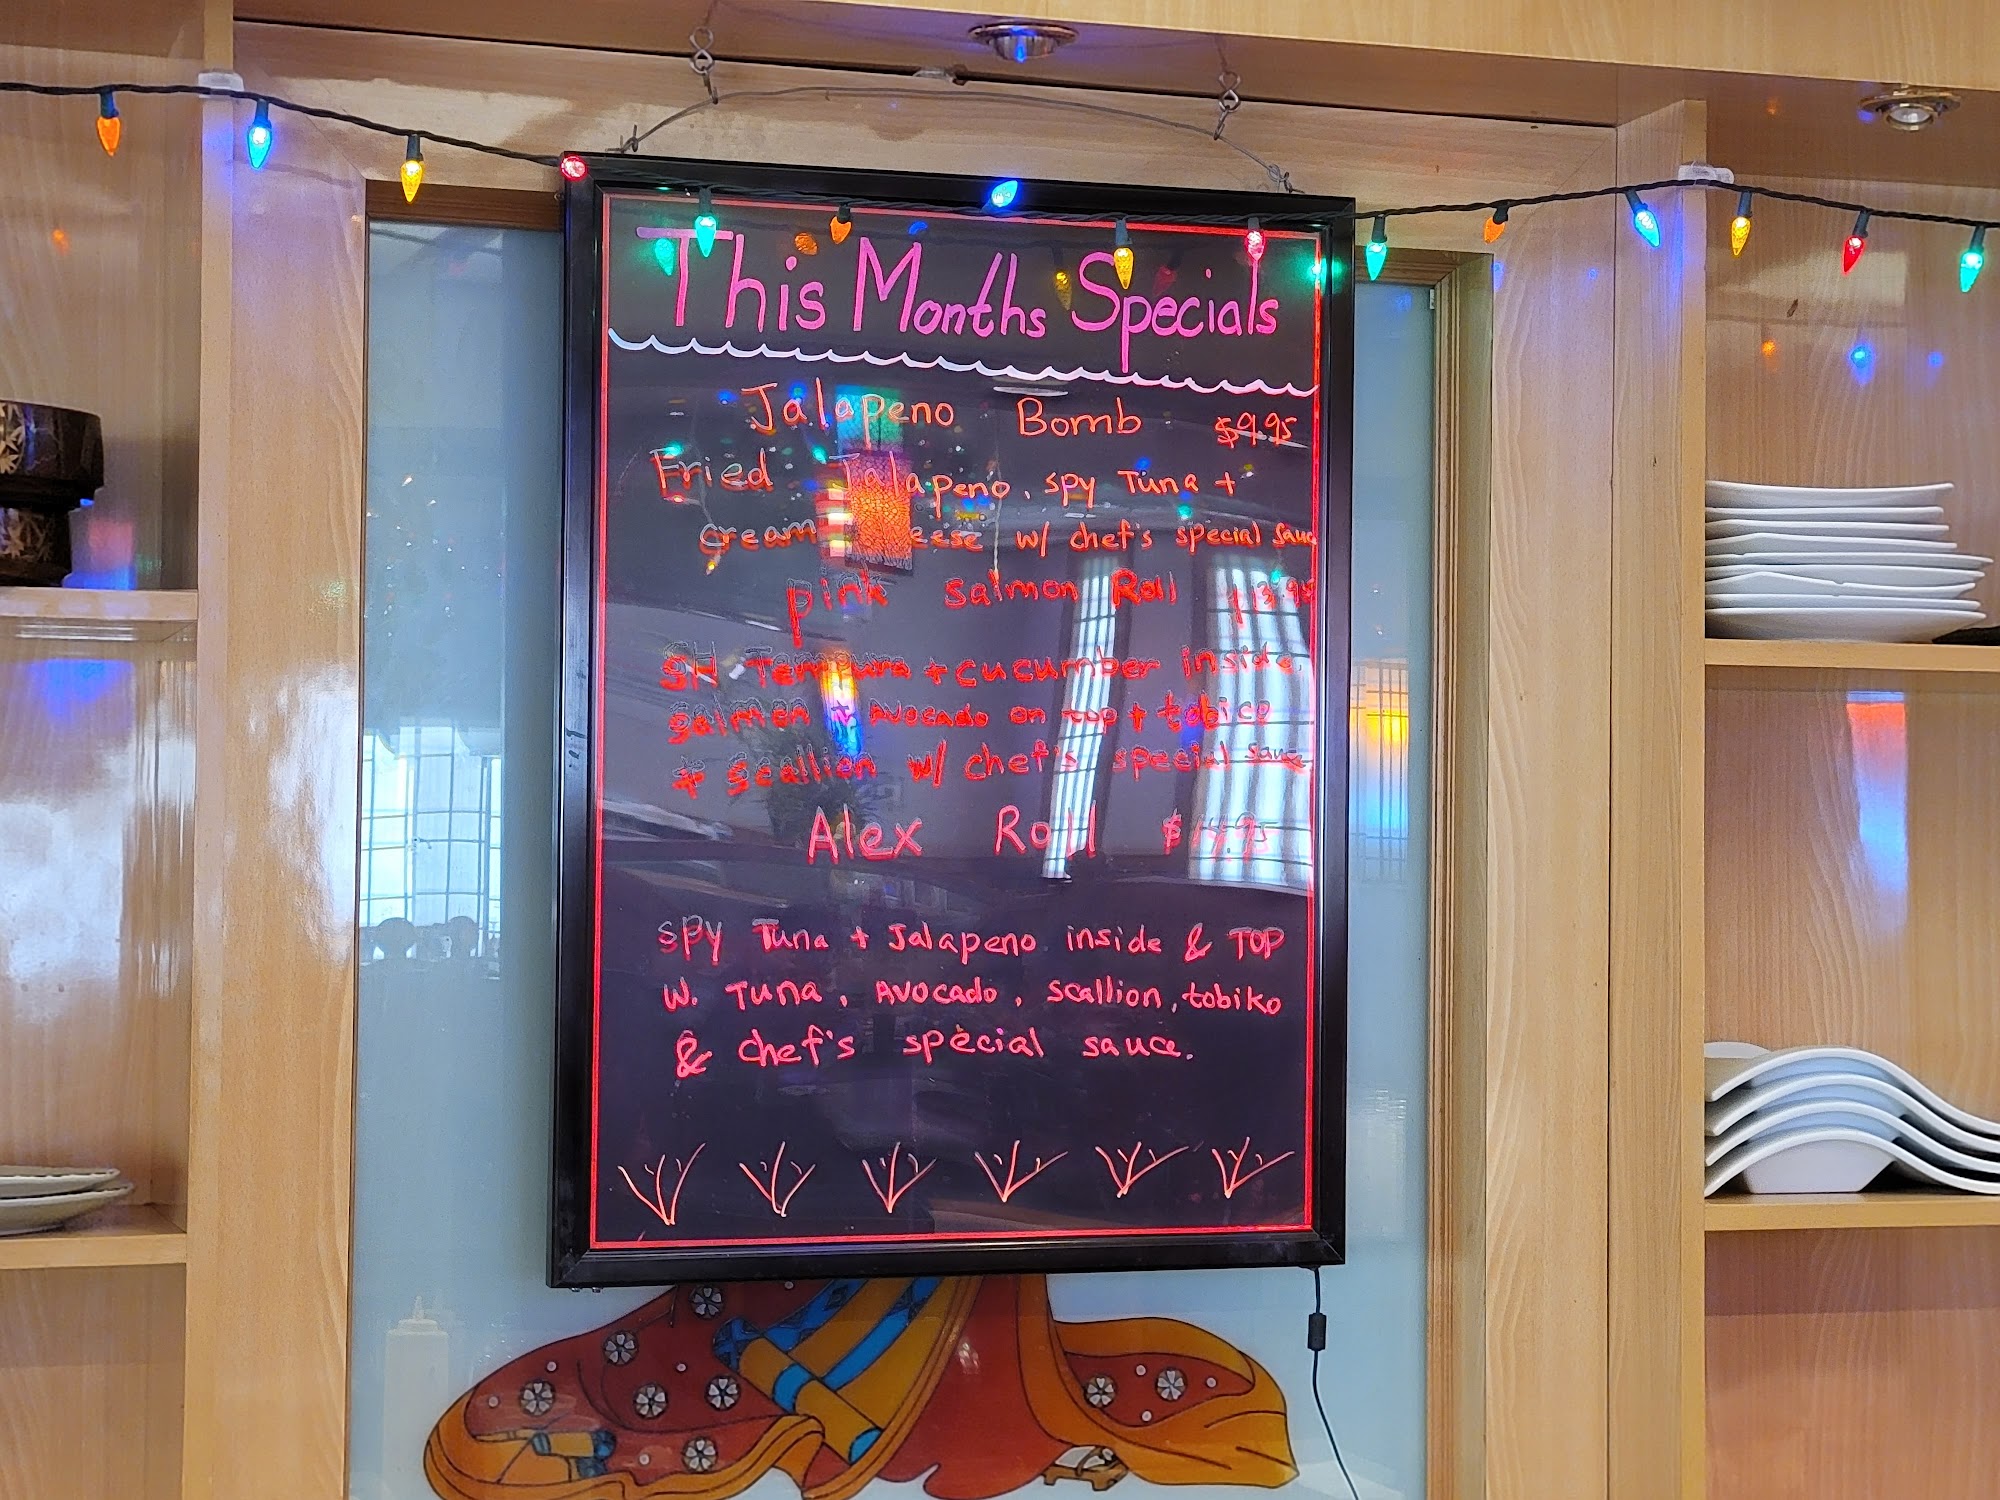 This Months Specials
Jalapeno Bomb $9.95
Fried Jalapeno, spy Tuna +
cream cheese w/ chef's special sauce
pink salmon Roll $13.95
SH Tempura + cucumber inside,
salmon + Avocado on top + tobico
+ scallion w/ chef's special sauce
Alex Roll $14.95
spy Tuna + Jalapeno inside & TOP
W. TUNA, AVOCADO, scallion, tobiko
& chef's special sauce.